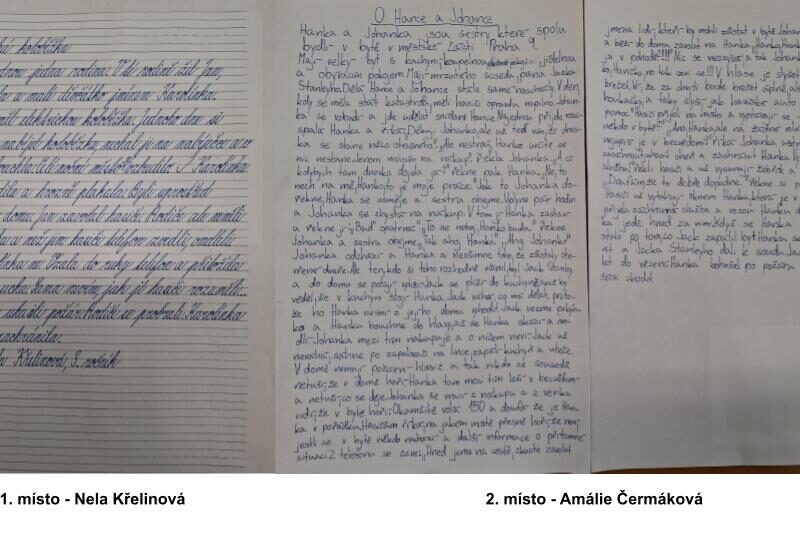 ká koloběžka
jedna rodina. V té rodině žil Jan,
a a měli děvčátko jménem Karolínka.
elektrickou koloběžku. Jednoho dne si
nabíjet koloběžku, nechal ji na nabíječce a
a hrozně plakala. Byli uprostřed
domu. Jan zavolal hasiče. Rodiče ale neměli
a než jim hasiči telefon zvedli, omdleli
Vzala do ruky telefon a přiložila
uchu. Sama nevím, jak jí hasiči rozuměli...
uhasili požár. Rodiče se probrali. Karolínka
zachránila.
la Křelinová, 3. ročník
O Hance a Johance
Hanka a Johanka jsou sestry, které spolu
bydlí v bytě v městské části Praha 9.
Mají velký byt s kuchyní, koupelnou, jídelnou
a obývacím pokojem. Mají mrzutého souseda, pana Jacka
Stanleyho. Dělá Hance a Johance stále samé naschvály. V den,
kdy se měla stát katastrofa, měli hasiči opravdu napilno. Johan-
ka se vzbudí a jde udělat snídani Hance. Najednou přijde roze-
spalá Hanka a říká: „Děkuji, Johanko, ale už teď vím, že dnes-
ka se stane něco strašného." „Ale nestraš, Hanko, určitě se
nic nestane. Jenom musím na nákup." Řekla Johanka. „A co
kdybych tam dneska došla já?" Řekne pak Hanka. „Ne, to
nech na mě, Hanko, to je moje práce." Jak to Johanka do-
řekne, Hanka se usměje a sestru obejme. Uplyne pár hodin
a Johanka se chystá na nákup. V tom ji Hanka zastaví
a řekne jí: „Buď opatrná." „To se neboj, Hanko, budu." Řekne
Johanka a sestru obejme. „Tak ahoj, Hanko." „Ahoj, Johanko."
Johanka odchází a Hanka si nevšimne toho, že zůstaly ote-
vřené dveře. Ale ten, kdo si toho rozhodně všiml, byl Jack Stanley
a do domu se potají vplíží. Jack se plíží do kuchyně, aniž by
věděl, že v kuchyni stojí Hanka. Jack váhá, co má dělat, proto-
že ho Hanka nesmí z jejího domu vyhodit. Jack vezme prkýn-
ko a Hanka bouchne do hlavy, až se Hanka skácí a om-
dlí. Johanka mezi tím nakupuje a o ničem neví. Jack už
neváhá, sáhne po zapalovači na lince, zapálí kuchyň a uteče.
V domě nemají požární hlásič a tak nikdo ze sousedů
netuší, že v domě hoří. Hanka tam mezi tím leží v bezvědomí
a netuší, co se děje. Johanka se vrací z nákupu a z venku
vidí, že v bytě hoří. Okamžitě volá 150 a doufá, že je Han-
ka v pořádku. Hasičům říká, na jakém místě přesně hoří, že neví,
jestli se v bytě někdo nachází a další informace o přítomné
situaci. Z telefonu se ozve: „Hned jsme na cestě, zkuste zavolat
jména lidí, kteří by mohli zůstat v bytě. Johan
a běží do domu zavolat na Hanku. „Hanko, Hank
jsi v pohodě?!!" Nic se neozývá, a tak Johank
ko, Haničko, no tak ozvi se!!!" V hlase je slyšet
brečet. Ví, že za chvíli bude brečet úplně, ale
houkačky, a taky slyší, jak hasičské auto
pomoc! Hasiči přijeli na místo a vyptávají se
někdo v bytě?" „Ano, Hanka, ale na žádné volá
nejspíš je v bezvědomí." Říká Johanka
zachránit Hanku.
službu." Řekli hasiči a už vysunují žebřík a
„Doufám, že to dobře dopadne." Řekne si p
Hasiči už vytahují oknem Hanku, která je v
přijela záchranná služba a vezou Hanku d
ka jede hned za nimi. Když se Hanka
ptalo po tom, co Jack zapálil byt. Hanka se
ni a Jacka Stanleyho dali k soudu. Jac
let do vězení. Hanka bohužel po požáru
špatně chodit.
1. místo - Nela Křelinová
2. místo - Amálie Čermáková